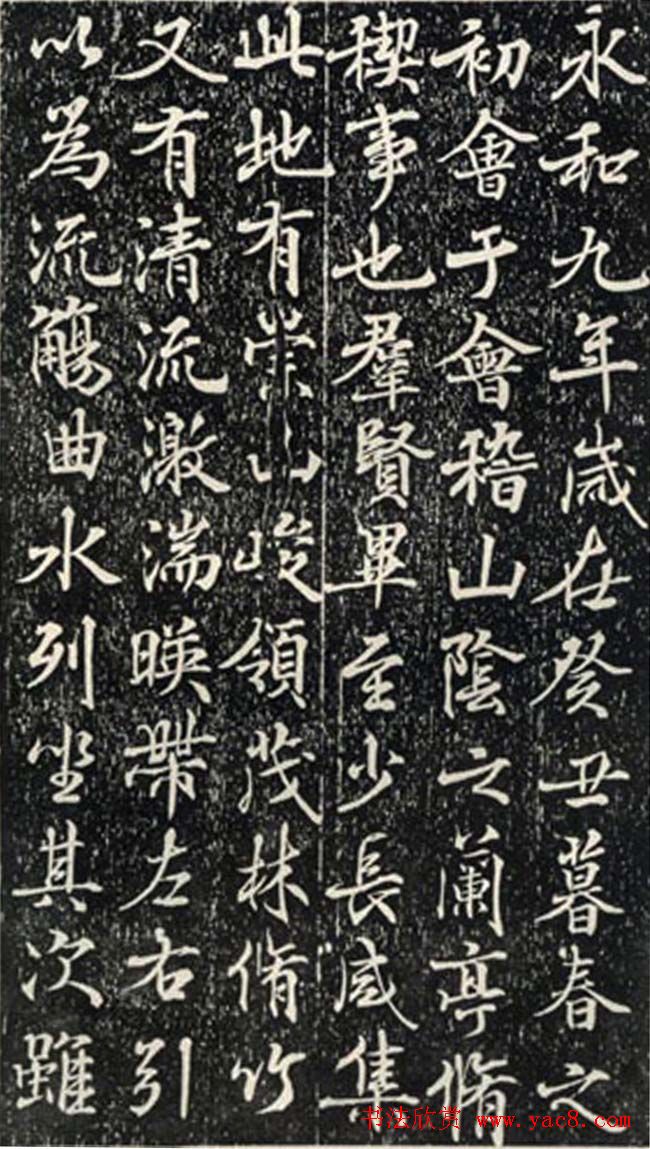 永和九年歲在癸丑暮春之
初會于會稽山陰之蘭亭脩
稧事也羣賢畢至少長咸集
此地有崇山峻領茂林脩竹
又有清流激湍暎帶左右引
以為流觴曲水列坐其次雖
书法欣赏 www.yac8.com